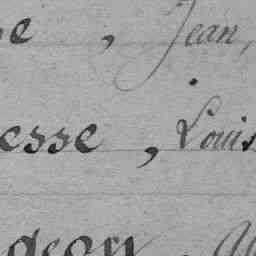 e, Jean,
esse, Louis
geon,